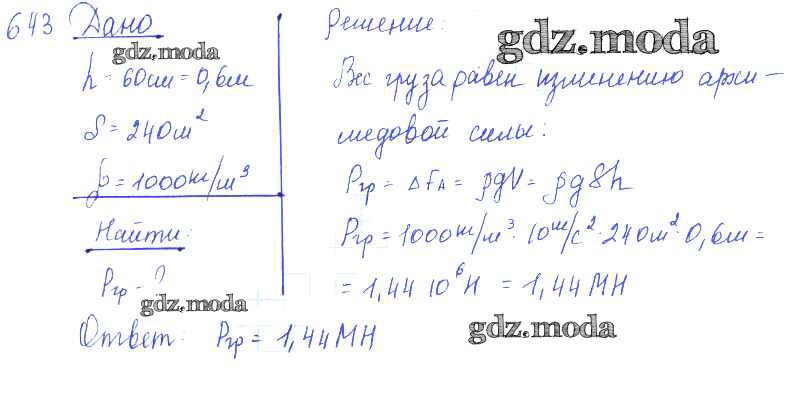 643 Дано
gdz.moda
h = 60см = 0,6м
S = 240м²
ρ = 1000кг/м³
Найти:
Pгр - ?
gdz.moda
Решение:
gdz.moda
Вес груза равен изменению архи-
медовой силы:
Pгр = ΔFA = ρgV = ρgSh
Pгр = 1000кг/м³ · 10м/с² · 240м² · 0,6м =
= 1,44 10⁶Н = 1,44 МН
gdz.moda
Ответ: Pгр = 1,44МН